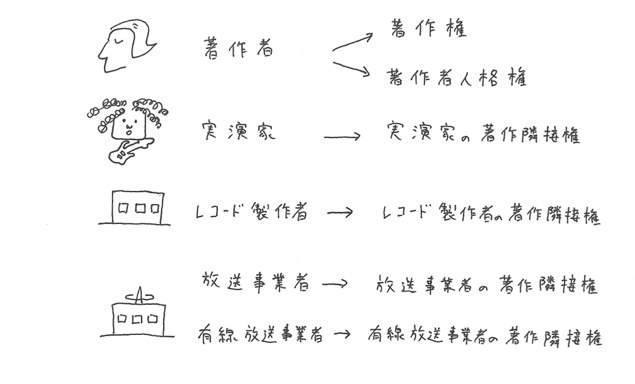 著作者
著作権
著作者人格権
実演家 → 実演家の著作隣接権
レコード製作者 → レコード製作者の著作隣接権
放送事業者 → 放送事業者の著作隣接権
有線放送事業者 → 有線放送事業者の著作隣接権